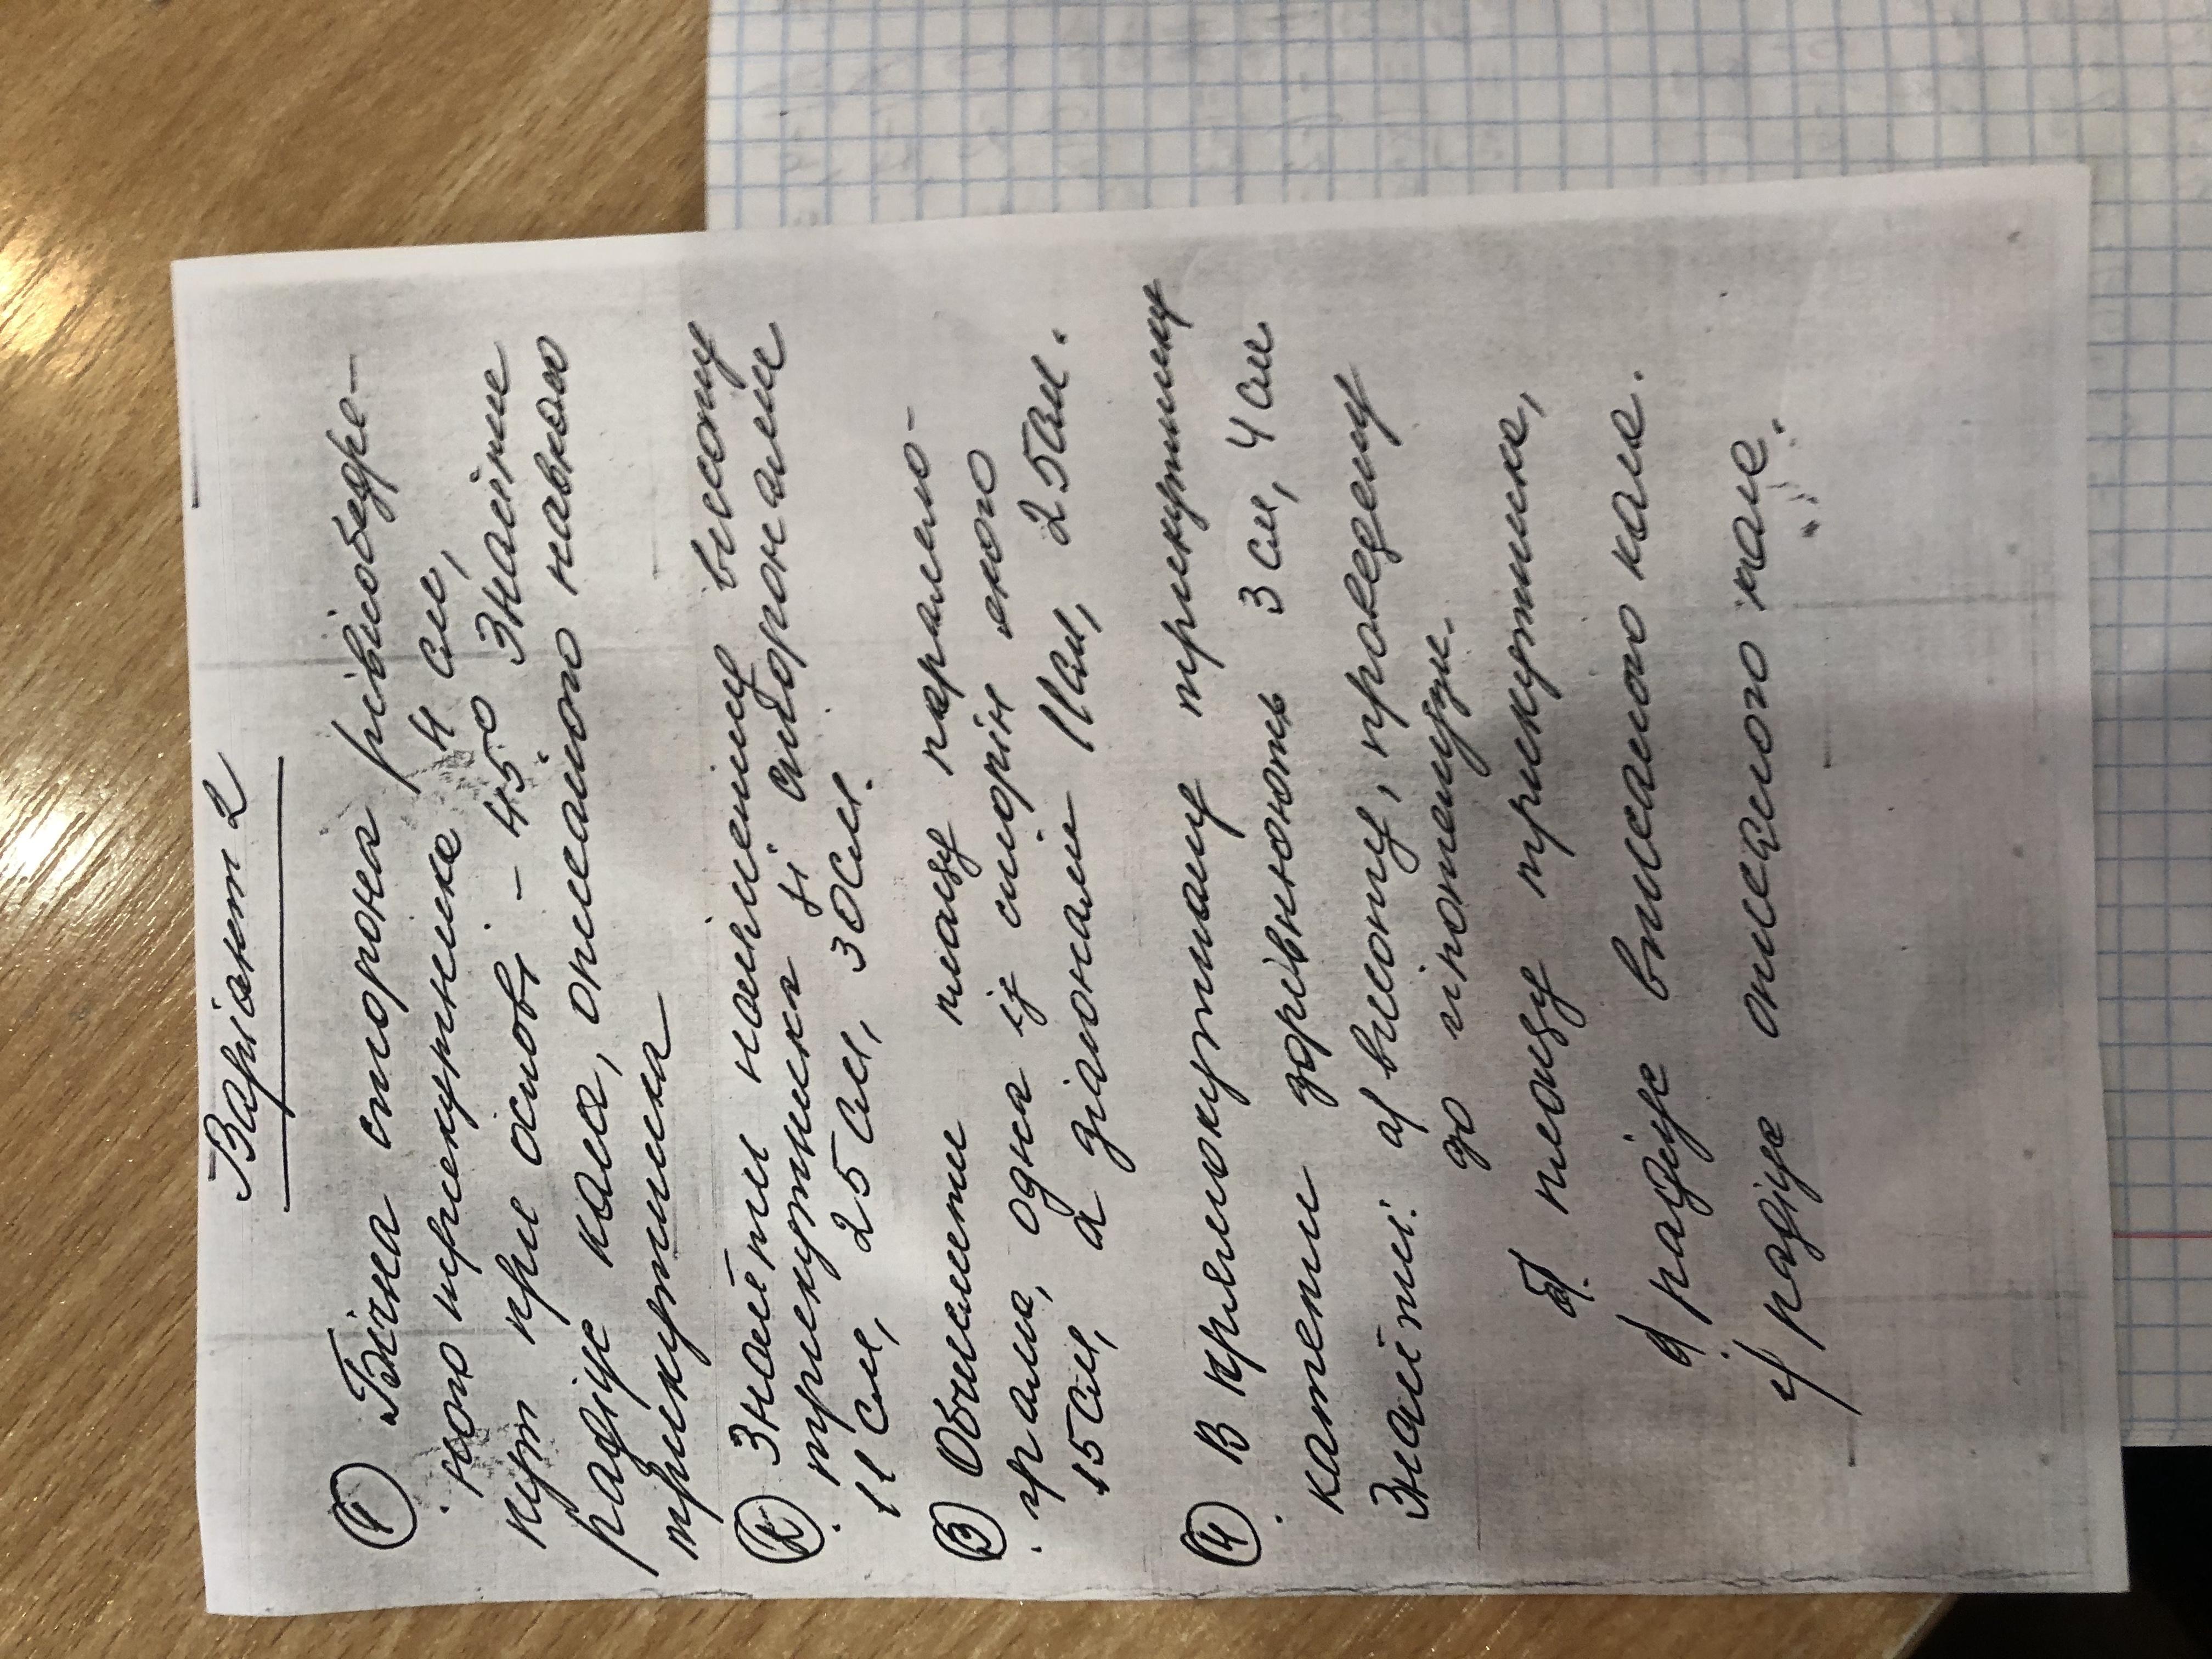 Варіант 2
① Бічна сторона рівнобедре-
ного трикутника 4 см,
кут при основі - 45°. Знайти
радіус кола, описаного навколо
трикутника
② Знайти найменшу висоту
трикутника зі сторонами
11 см, 25 см, 30 см.
③ Обчислити площу парале­ло-
грама, одна із сторін якого
15 см, а діагоналі 11 см, 25 см.
④ В прямокутному трикутнику
катети дорівнюють 3 см, 4 см
Знайти: а) висоту, проведену
до гіпотенузи.
б) площу трикутника,
в) радіус вписаного кола.
г) радіус описаного кола.